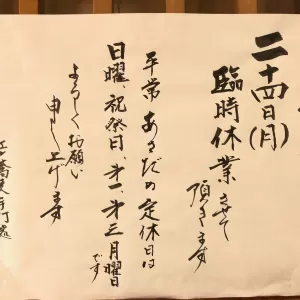 二十四日(月)
臨時休業させて
頂きます
平常あさだの定休日は
日曜、祝祭日、才一、才三月曜日
です
よろしくお願い
申し上げます